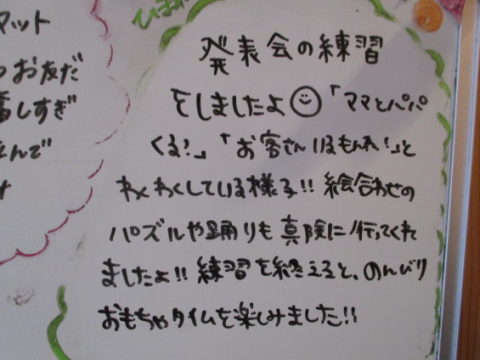 マット
お友だ
しすぎ
んで
ひま
発表会の練習
をしましたよ☺「ママとパパ
くる?」「お客さんいるもんね!」と
わくわくしている様子!! 絵合わせの
パズルや踊りも真険に行ってくれ
ましたよ!! 練習を終えると、のんびり
おもちゃタイムを楽しみました!!